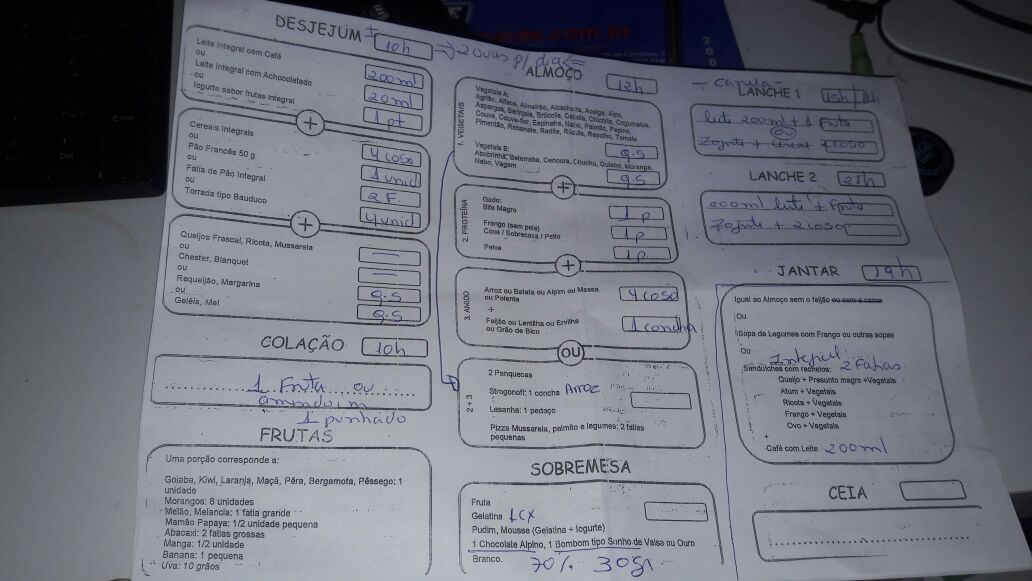 DESJEJUM ± 10h => 2 ovos p/ dia <=
Leite Integral com Café
ou
200ml
Leite Integral com Achocolatado
ou
20ml
Iogurte sabor frutas integral
1 pt
+
Cereais Integrais
ou
4 coso
Pão Francês 50 g
ou
1 unid
Fatia de Pão Integral
ou
2 F.
Torrada tipo Bauduco
4 unid
+
Queijos Frescal, Ricota, Mussarela
ou
Chester, Blanquet
ou
Requeijão, Margarina
q.s
ou
Geléia, Mel
q.s
COLAÇÃO 10h
1 Fruta ou
amendoim
1 punhado
FRUTAS
Uma porção corresponde a:
Goiaba, Kiwi, Laranja, Maçã, Pêra, Bergamota, Pêssego: 1
unidade
Morangos: 8 unidades
Melão, Melancia: 1 fatia grande
Mamão Papaya: 1/2 unidade pequena
Abacaxi: 2 fatias grossas
Manga: 1/2 unidade
Banana: 1 pequena
Uva: 10 grãos
ALMOÇO 12h
1. VEGETAIS
Vegetais A:
Agrião, Alface, Almeirão, Alcachofra, Acelga, Aipo,
Aspargos, Berinjela, Brócolis, Cebola, Chicória, Cogumelos,
Couve, Couve-flor, Espinafre, Nabo, Palmito, Pepino,
Pimentão, Rabanete, Radite, Rúcula, Repolho, Tomate
q.s
Vegetais B:
Abobrinha, Beterraba, Cenoura, Chuchu, Quiabo, Moranga,
Nabo, Vagem
q.s
+
2. PROTEÍNA
Gado:
Bife Magro
1 p
Frango (sem pele)
Coxa / Sobrecoxa / Peito
1 p
Peixe
1 p
+
3. AMIDO
Arroz ou Batata ou Aipim ou Massa
ou Polenta
4 coso
+
Feijão ou Lentilha ou Ervilha
ou Grão de Bico
1 concha
OU
2 + 3
2 Panquecas
Strogonoff: 1 concha Arroz
Lasanha: 1 pedaço
Pizza Mussarela, palmito e legumes: 2 fatias
pequenas
SOBREMESA
Fruta
Gelatina 1 CX
Pudim, Mousse (Gelatina + Iogurte)
1 Chocolate Alpino, 1 Bombom tipo Sonho de Valsa ou Ouro
Branco.
70% 30gr
LANCHE 1 15h
leite 200ml + 1 fruta
ou
LANCHE 2 21h
200ml leite + Fruta
+ 2 coso
JANTAR 19h
Igual ao Almoço sem o feijão ou sem a carne
Ou
Sopa de Legumes com Frango ou outras sopas
Ou
Integral
Sanduíches com recheios: 2 Fatias
Queijo + Presunto magro + Vegetais
Atum + Vegetais
Ricota + Vegetais
Frango + Vegetais
Ovo + Vegetais
+
Café com Leite 200ml
CEIA